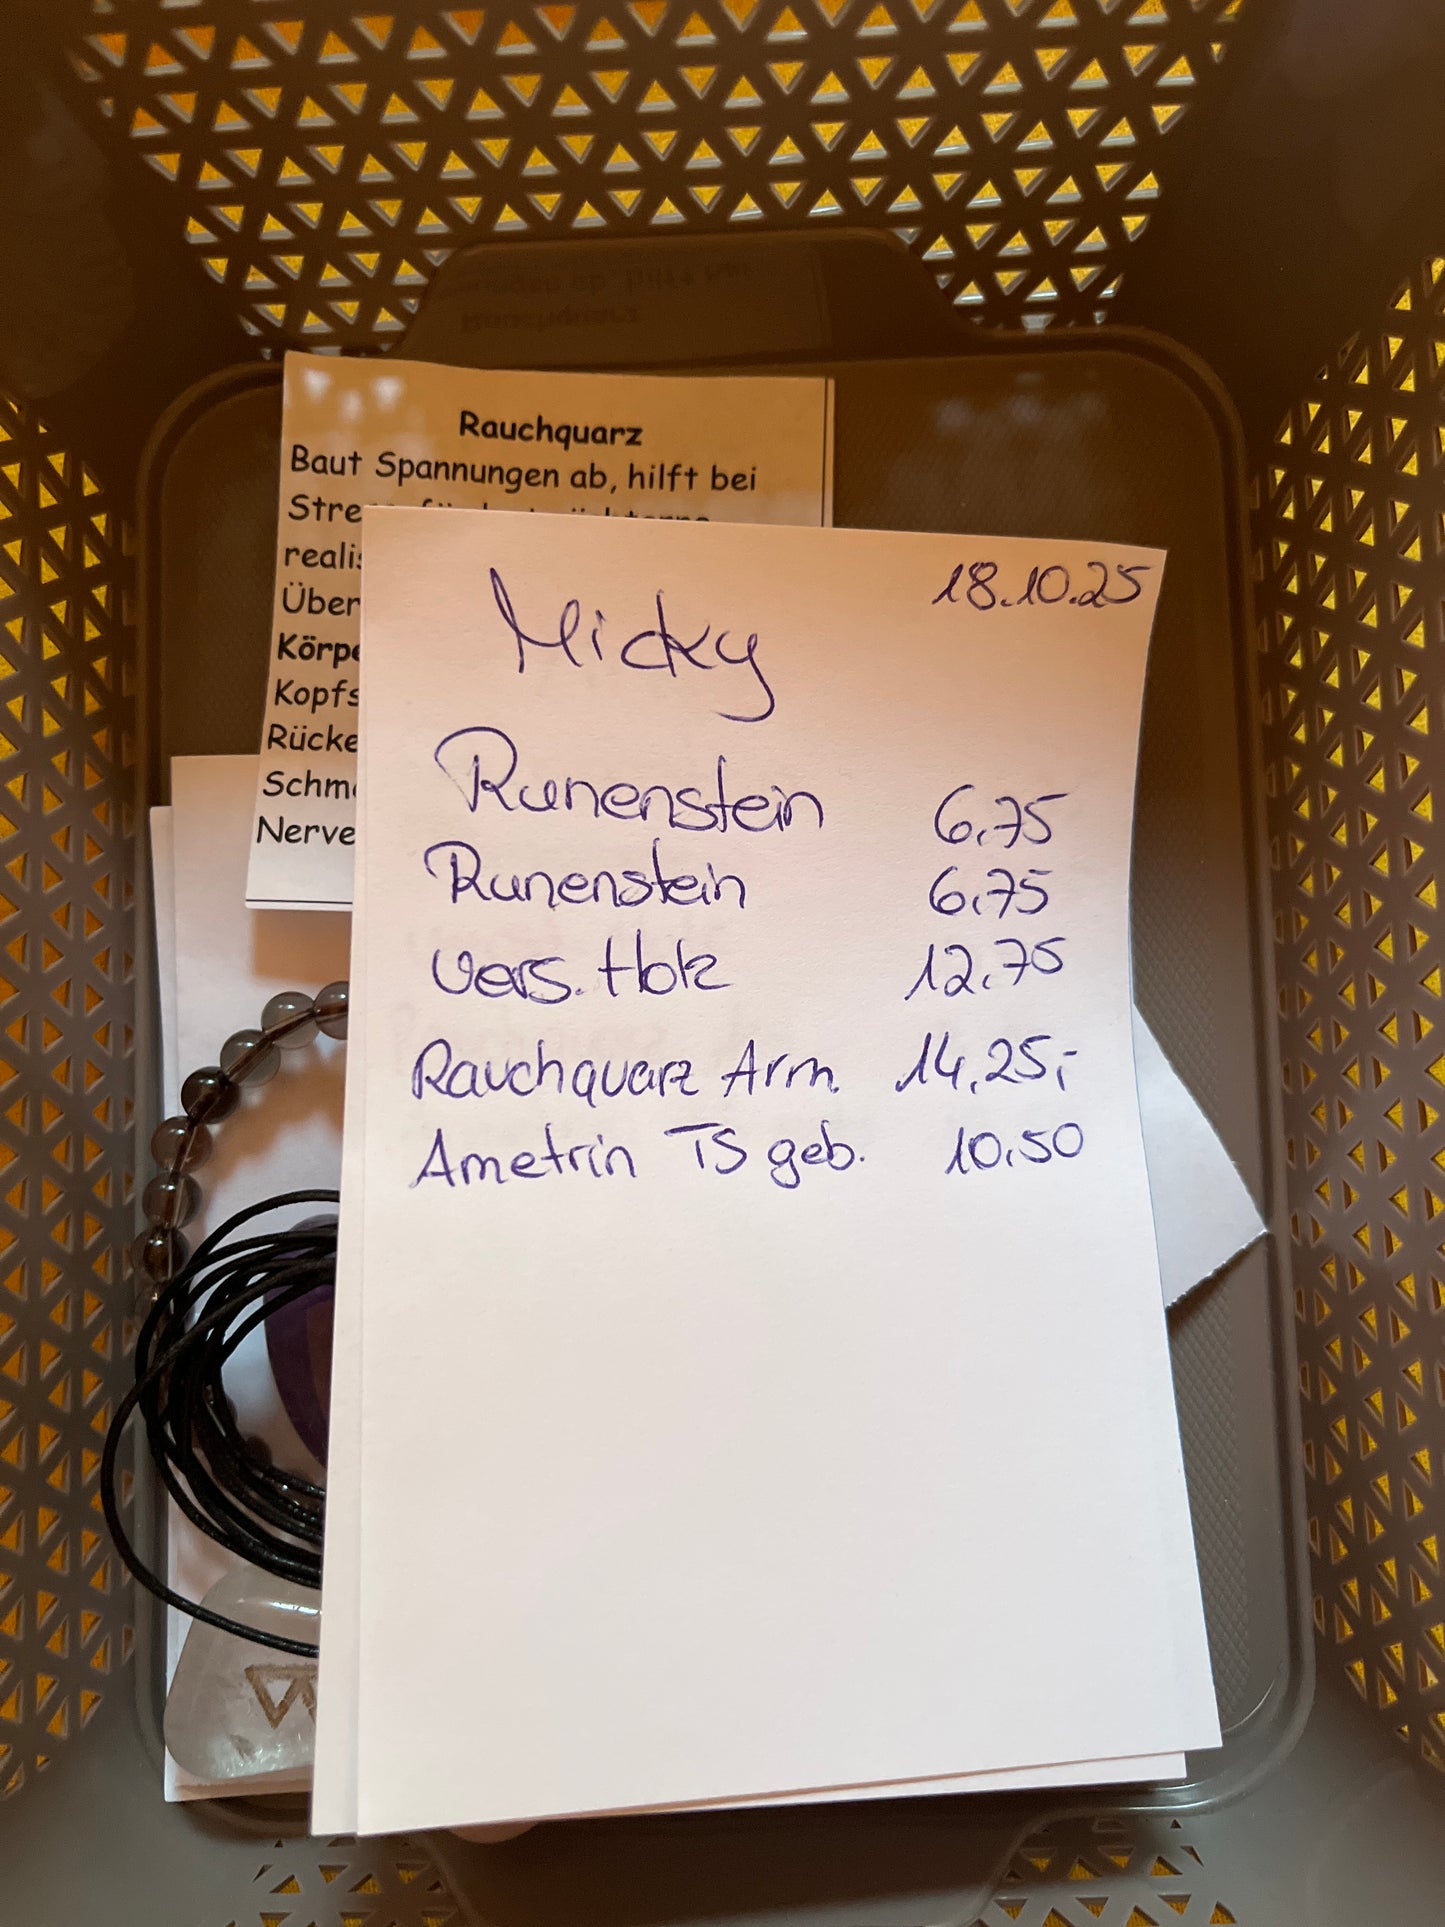 Rauchquarz
Baut Spannungen ab, hilft bei
Stre
realis
Über
Körpe
Kopfs
Rücke
Schme
Nerve
Micky
18.10.25
Runenstein 6,75
Runenstein 6,75
vers. Holz 12,75
Rauchquarz Arm. 14,25,-
Ametrin TS geb. 10,50